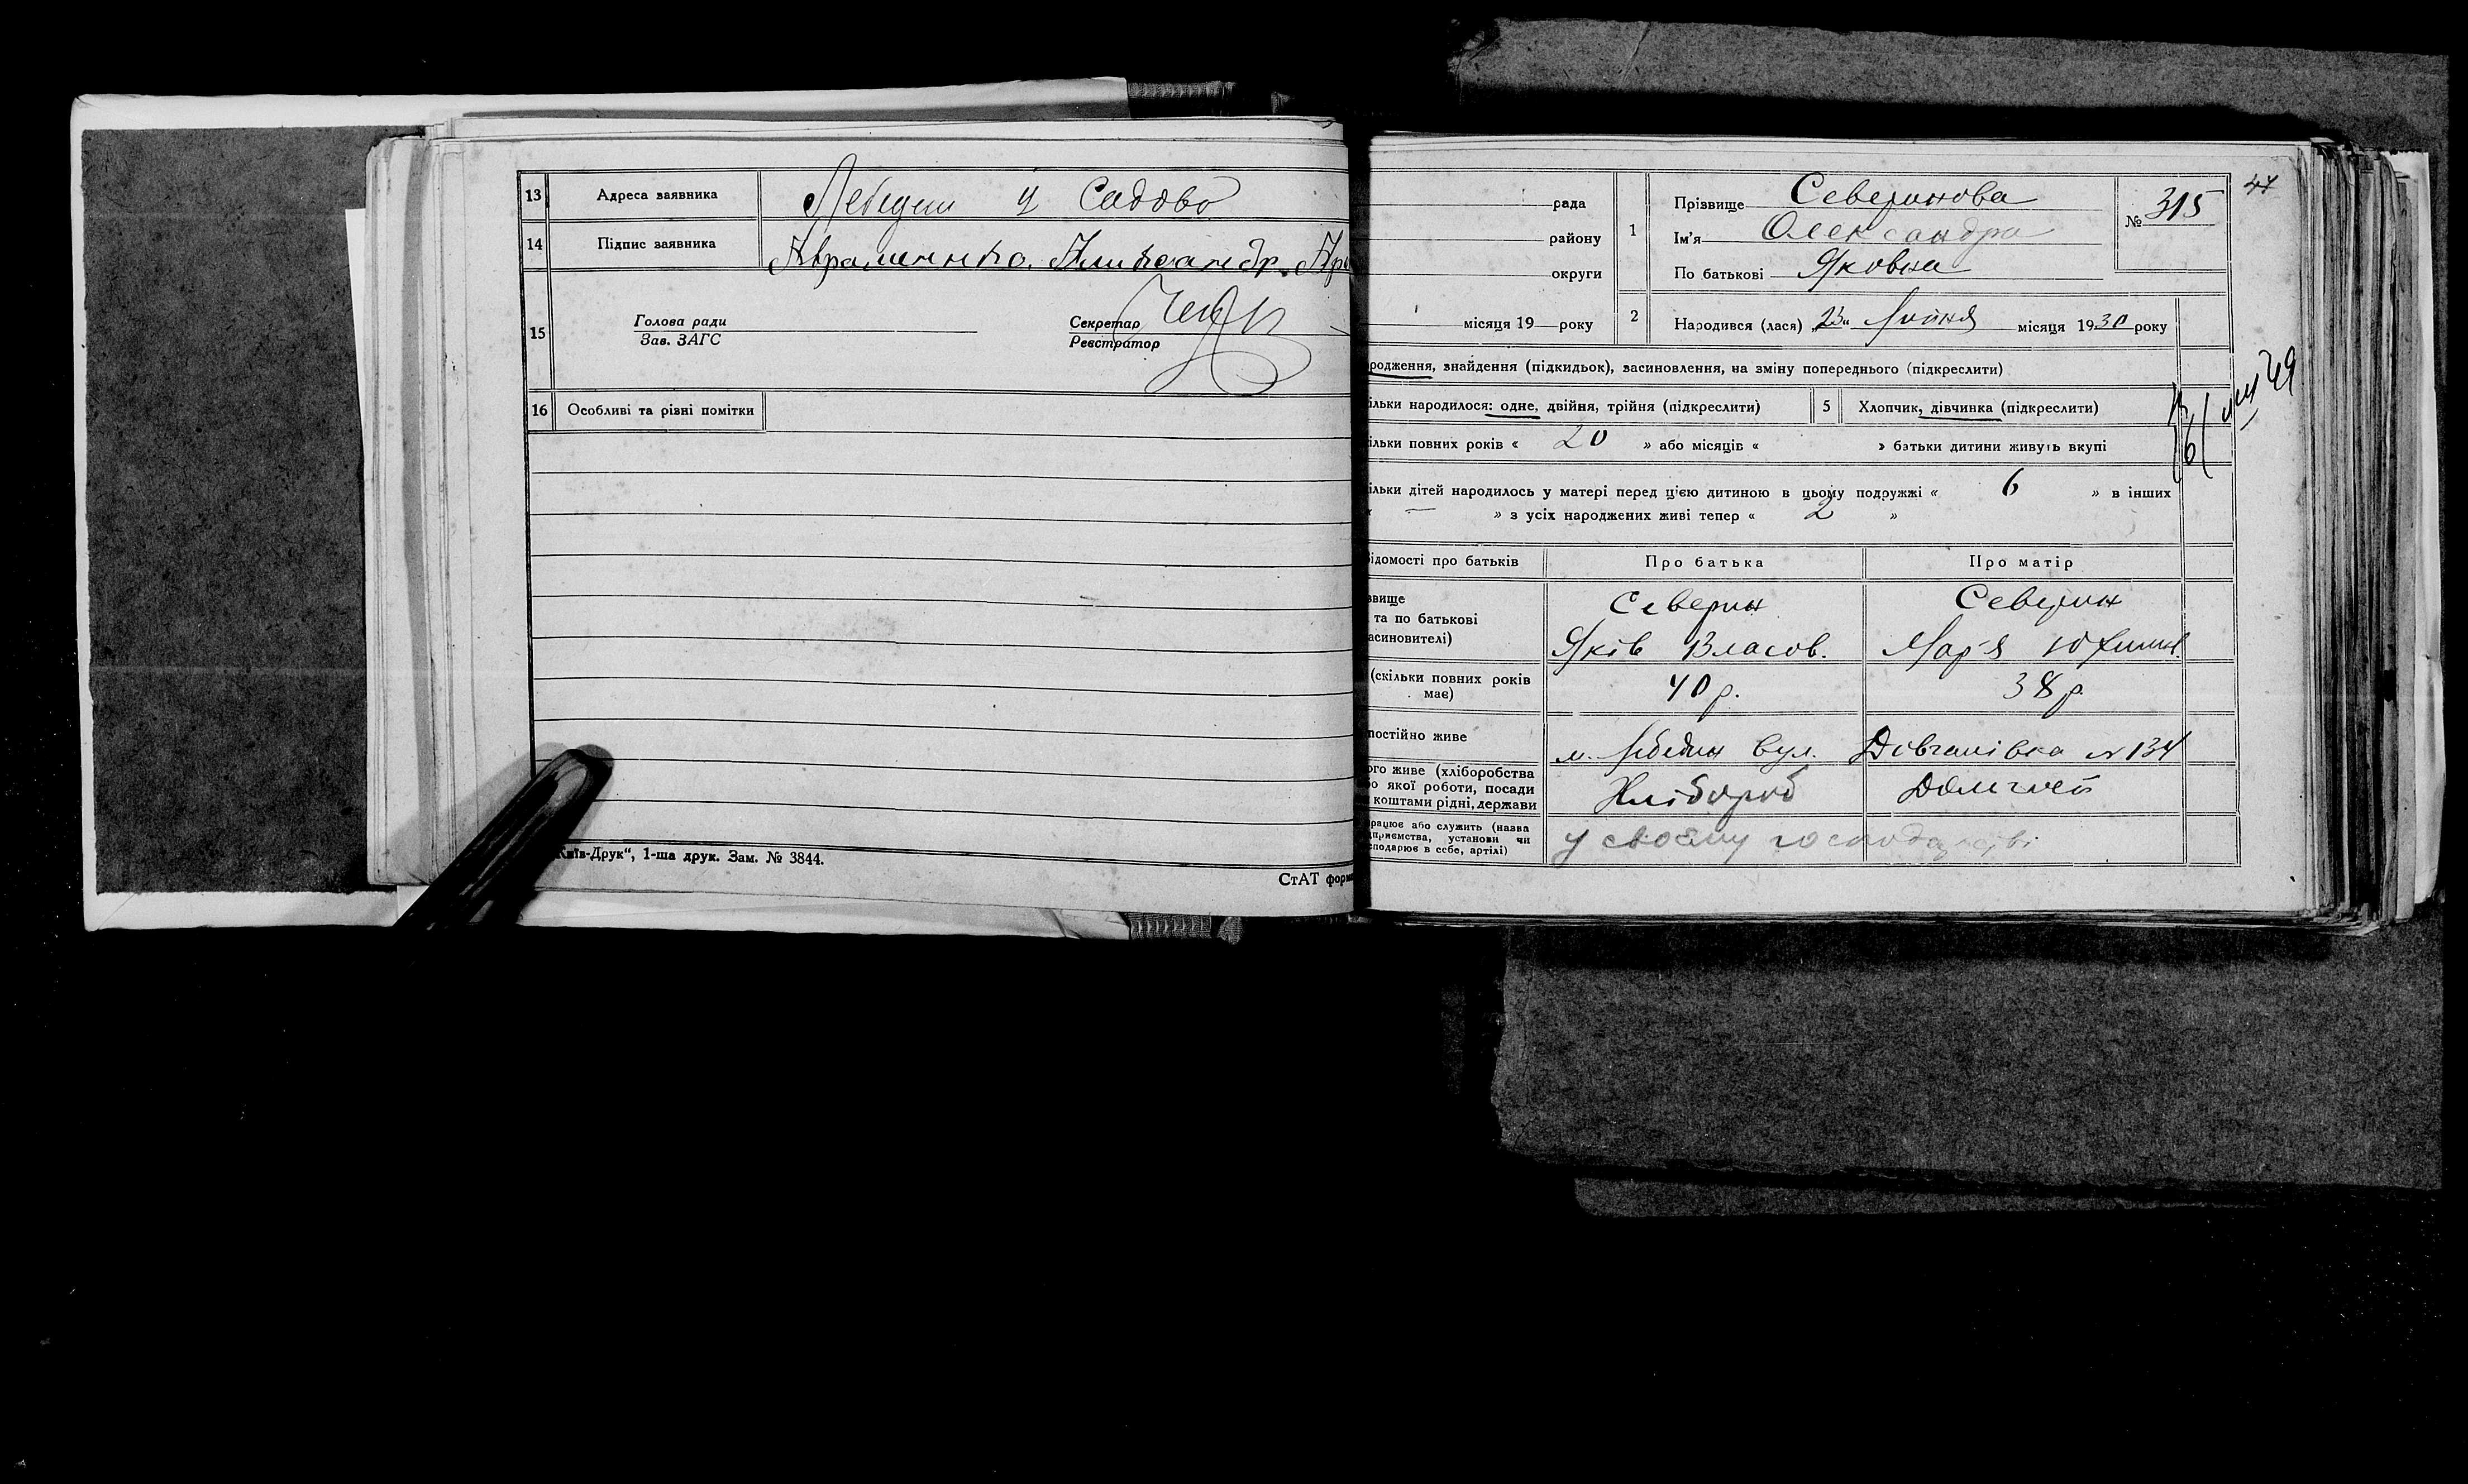 13 Адреса заявника Лебедин у Садово
14 Підпис заявника Авраменко. Александр. Ар
15 Голова ради
Зав. ЗАГС
Секретар
Реєстратор
16 Особливі та різні помітки
Київ-Друк“, 1-ша друк. Зам. № 3844.
СтАТ форм
47
рада
району
округи
місяця 19 року
1 Прізвище Северинова
Ім'я Олександра
По батькові Яковна
№ 315
2 Народився (лася) „23“ місяця 1930 року
родження, знайдення (підкидьок), васиновлення, на зміну попереднього (підкреслити)
ільки народилося: одне, двійня, трійня (підкреслити) 5 Хлопчик, дівчинка (підкреслити)
ільки повних років « 20 » або місяців « » батьки дитини живуть вкупі
ільки дітей народилось у матері перед цією дитиною в цьому подружжі « 6 » в інших
« — » з усіх народжених живі тепер « 2 »
ідомості про батьків Про батька Про матір
звище Северин Северин
та по батькові
асиновителі) Яків Власов. Мар'я Юхимив.
(скільки повних років
має) 40 р. 38 р.
постійно живе м. Лебедин вул. Довганівка № 134
ого живе (хліборобства
о якої роботи, посади
коштами рідні, держави Хлібороб
рацює або служить (назва
дприємства, установи чи
сподарює в себе, артілі) у своєму господарстві